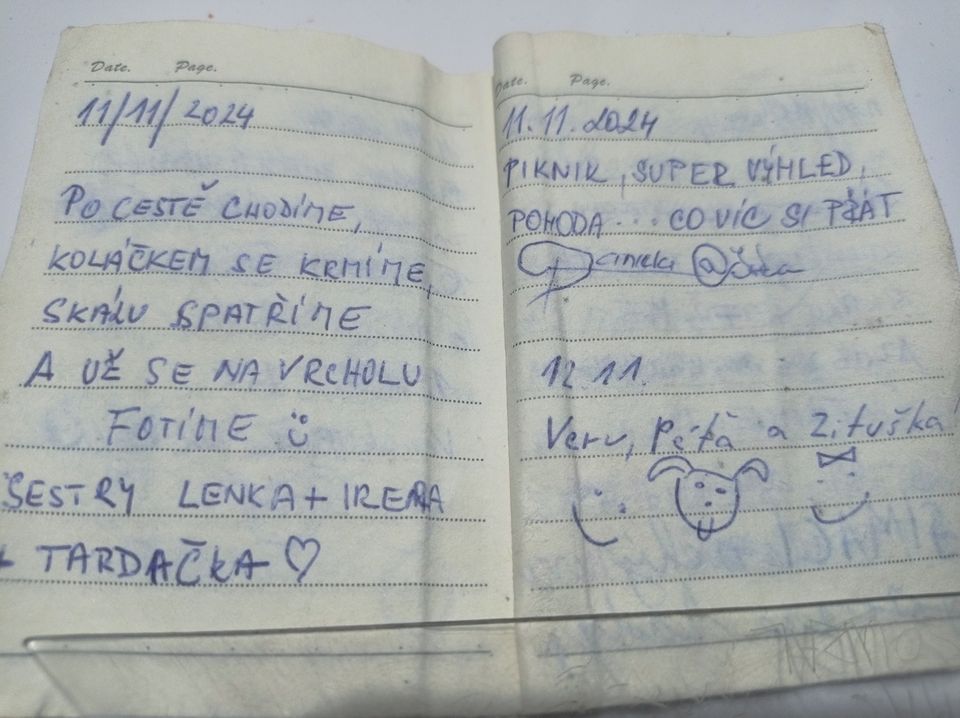 Date. Page.
11/11/2024
PO CESTĚ CHODÍME,
KOLÁČKEM SE KRMÍME,
SKÁLU SPATŘÍME
A UŽ SE NA VRCHOLU
FOTÍME
SESTRY LENKA + IRENA
+ TARDAČKA
Date. Page.
11.11.2024
PIKNIK, SUPER VÝHLED,
POHODA... CO VÍC SI PŘÁT
12 11.
Veru, Péťa a Zituška